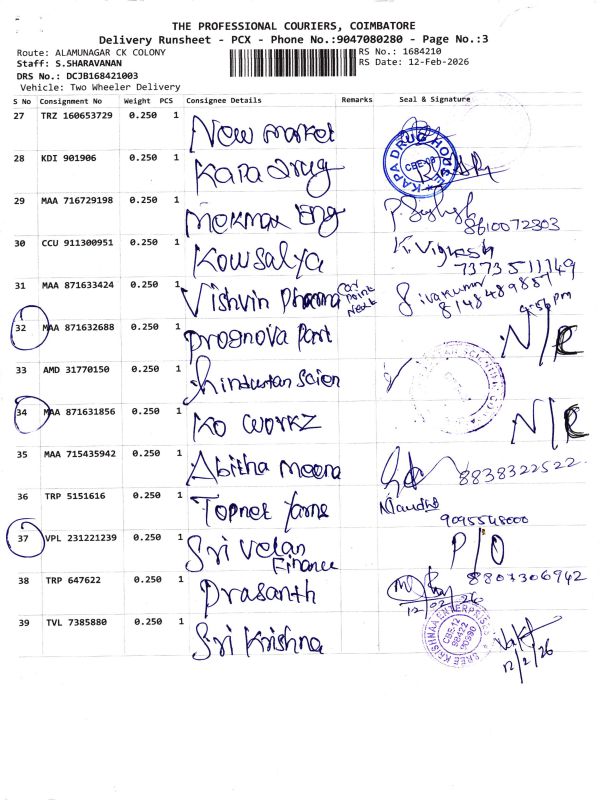 THE PROFESSIONAL COURIERS, COIMBATORE
Delivery Runsheet - PCX - Phone No.:9047080280 - Page No.:3
Route: ALAMUNAGAR CK COLONY
RS No.: 1684210
Staff: S.SHARAVANAN
RS Date: 12-Feb-2026
DRS No.: DCJB168421003
Vehicle: Two Wheeler Delivery
S No Consignment No Weight PCS Consignee Details Remarks Seal & Signature
27 TRZ 160653729 0.250 1 New market
28 KDI 901906 0.250 1 Kapa Drug
KAPA DRUG HOUSE
29 MAA 716729198 0.250 1 Mekmax Eng
8610072303
30 CCU 911300951 0.250 1 Kowsalya K. Vignesh
7373511149
31 MAA 871633424 0.250 1 Vishvin Pharma car point next Sivakumar
8148489857
4-56 pm
32 MAA 871632688 0.250 1 Prognova Pant N/R
33 AMD 31770150 0.250 1 hindustan scien
34 MAA 871631856 0.250 1 KO WORKZ N/R
35 MAA 715435942 0.250 1 Abitha meena 8838322522
36 TRP 5151616 0.250 1 Topnet Yarne
9095548000
37 VPL 231221239 0.250 1 Sri Velan Finance P/O
38 TRP 647622 0.250 1 Prasanth 8807306942
12/02/26
39 TVL 7385880 0.250 1 Sri Krishna
SREE KRISHNAA ENTERPRISES
CBE-12
98422
90990
12/2/26